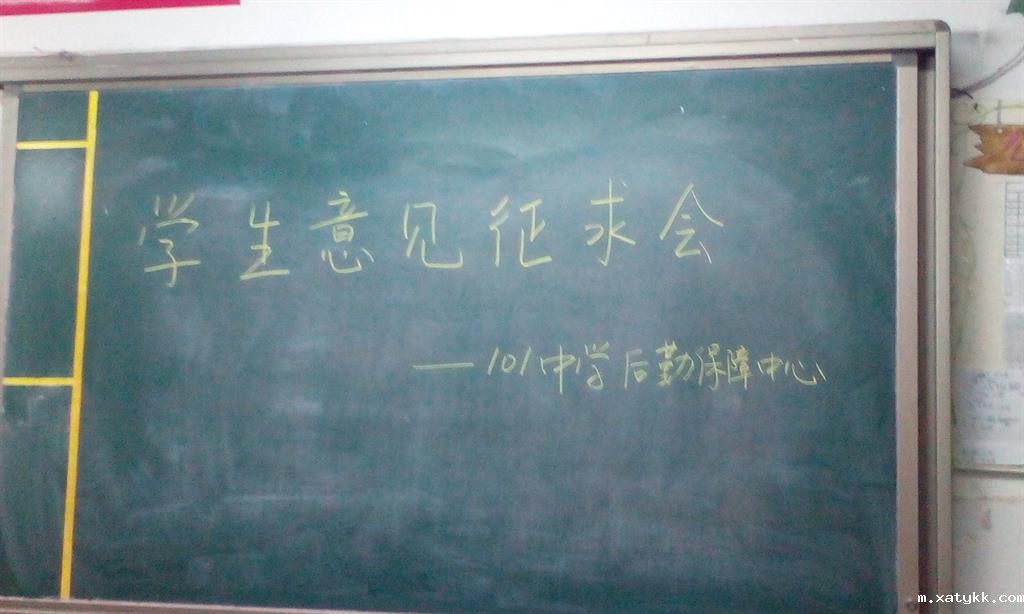 学生意见征求会
—101中学后勤保障中心
m.xatykk.com